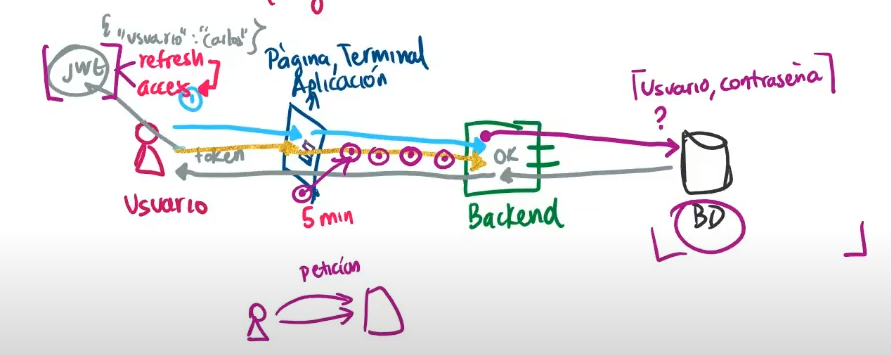 {"usuario":"Carlos"}
JWT
refresh
acces
1
Página, Terminal
Aplicación
[Usuario, contraseña]
?
token
OK
Usuario
5 min
Backend
BD
petición